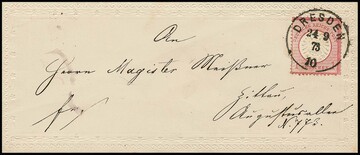 DRESDEN
24 9
73
10
An
Herrn Magister Meißner
Zittau,
Augustusallee
N. 773.
fr.